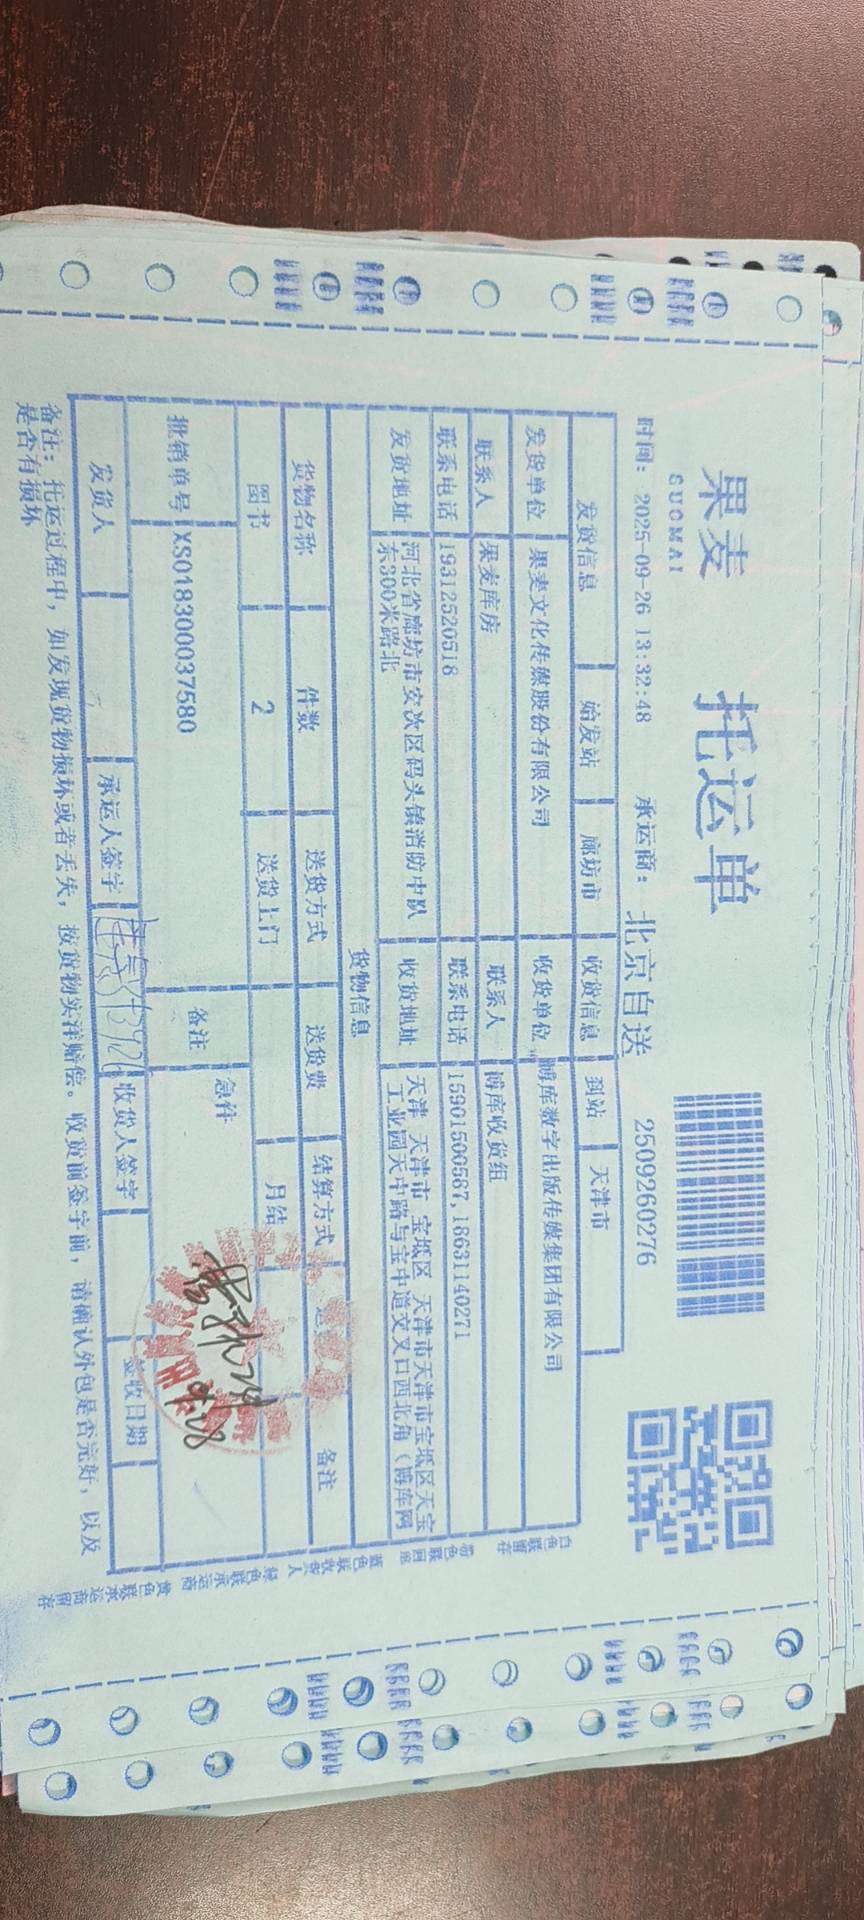 果麦
GUOMAI
托运单
时间： 2025-09-26 13:32:48 承运商： 北京自送 2509260276
发货信息 始发站 廊坊市 收货信息 到站 天津市
发货单位 果麦文化传媒股份有限公司 收货单位 博库数字出版传媒集团有限公司
联系人 果麦库房 联系人 博库收货组
联系电话 19312520518 联系电话 15901500587,18631140271
发货地址 河北省廊坊市安次区码头镇消防中队东300米路北 收货地址 天津 天津市 宝坻区 天津市天津市宝坻区天宝工业园天中路与宝中道交叉口西北角（博库网
货物信息
货物名称 件数 送货方式 送货费 结算方式 备注
图书 2 送货上门 月结
批销单号 XS018300037580 备注 急件
发货人 承运人签字 收货人签字 签收日期
9.28
备注： 托运过程中，如发现货物损坏或者丢失，按货物实洋赔偿。收货前签字前，请确认外包是否完好，以及
是否有损坏
白色联留存
粉色联回签
蓝色联收货人
绿色联承运商
黄色联承运商留存